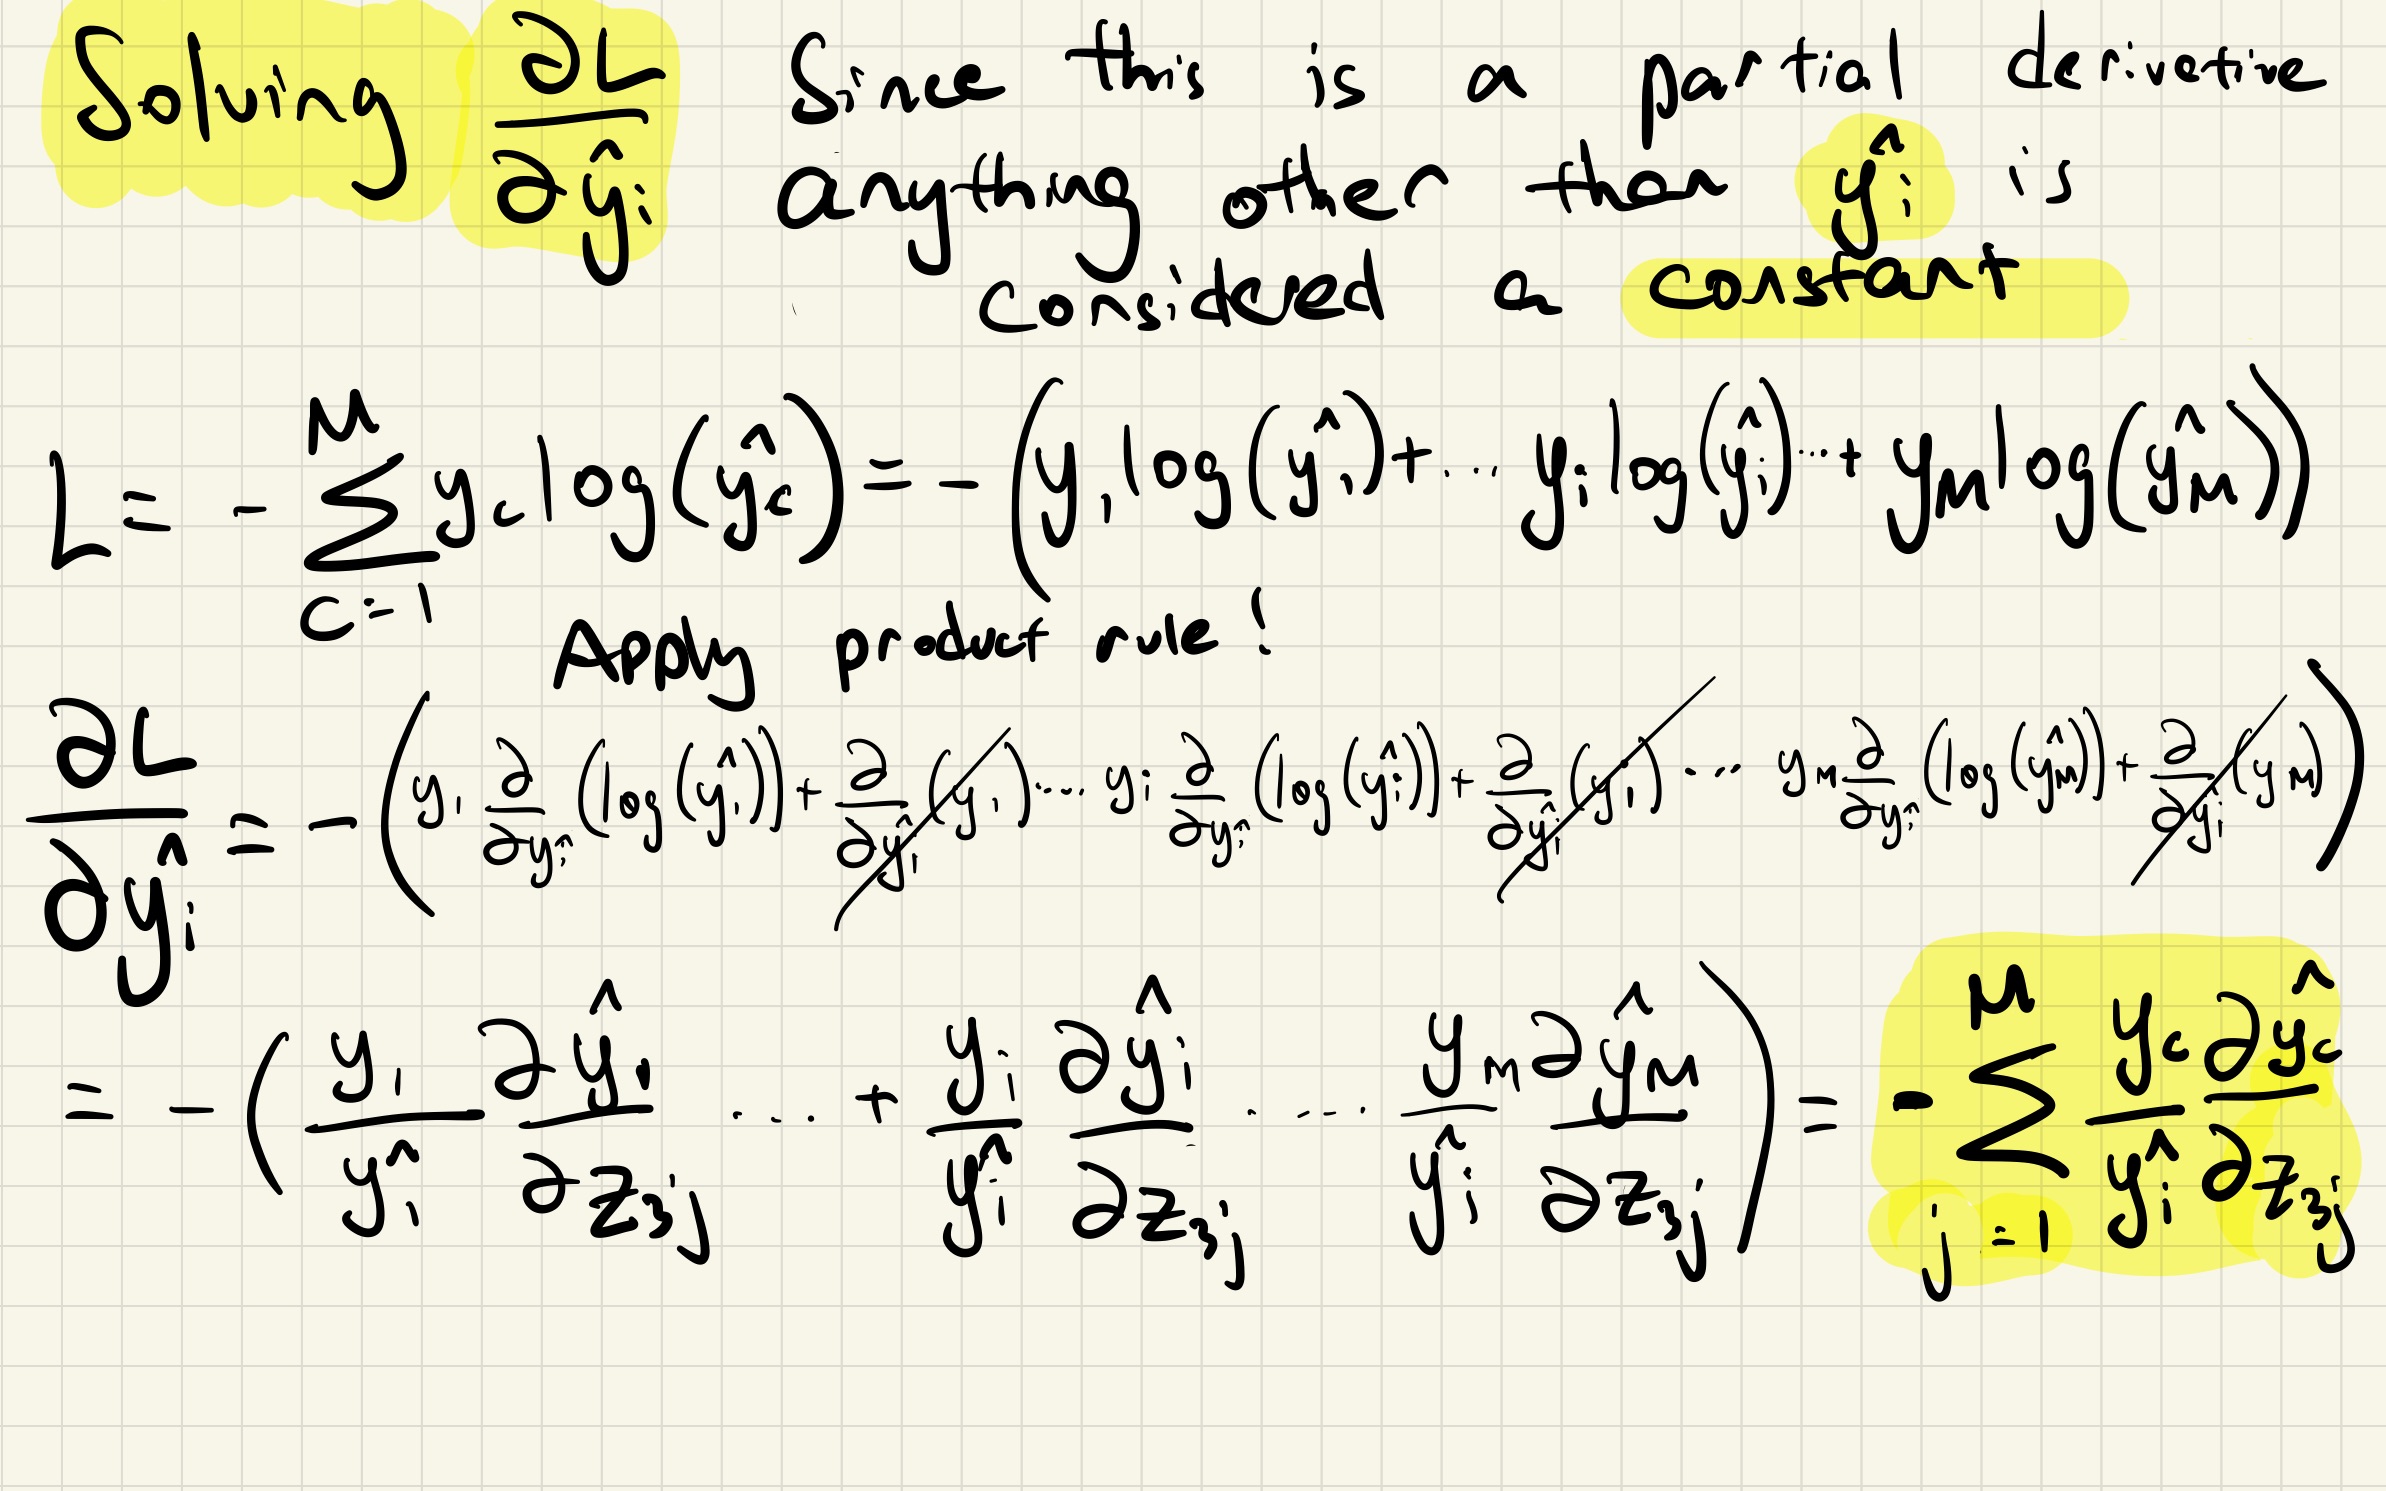 Solving ∂L/∂ŷᵢ Since this is a partial derivative
anything other than ŷᵢ is
considered a constant
L = - Σ_{c=1}^{M} y_c log(ŷ_c) = - (y₁ log(ŷ₁) + ... yᵢ log(ŷᵢ) ... + y_M log(ŷ_M))
Apply product rule!
∂L/∂ŷᵢ = - (y₁ ∂/∂ŷᵢ (log(ŷ₁)) + ∂/∂ŷᵢ (y₁) ... yᵢ ∂/∂ŷᵢ (log(ŷᵢ)) + ∂/∂ŷᵢ (yᵢ) ... y_M ∂/∂ŷᵢ (log(ŷ_M)) + ∂/∂ŷᵢ (y_M))
= - (y₁/ŷᵢ ∂ŷ₁/∂z_{3j} ... + yᵢ/ŷᵢ ∂ŷᵢ/∂z_{3j} ... y_M/ŷᵢ ∂ŷ_M/∂z_{3j}) = - Σ_{j=1}^{M} y_c/ŷᵢ ∂ŷ_c/∂z_{3j}